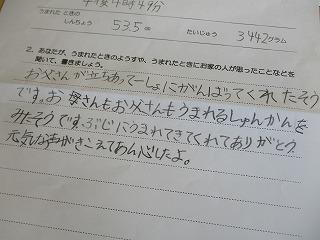 午後4時49分
うまれた ときの
しんちょう 53.5cm たいじゅう 3442グラム
2. あなたが、うまれたときのようすや、うまれたときにお家の人が思ったことなどを
聞いて、書きましょう。
お父さんが立ちあってーしょにがんばってくれたそう
です。お母さんもお父さんもうまれるしゅんかんを
みたそうです。ぶじにうまれてきてくれてありがとう
元気な声がきこえてあん心したよ。